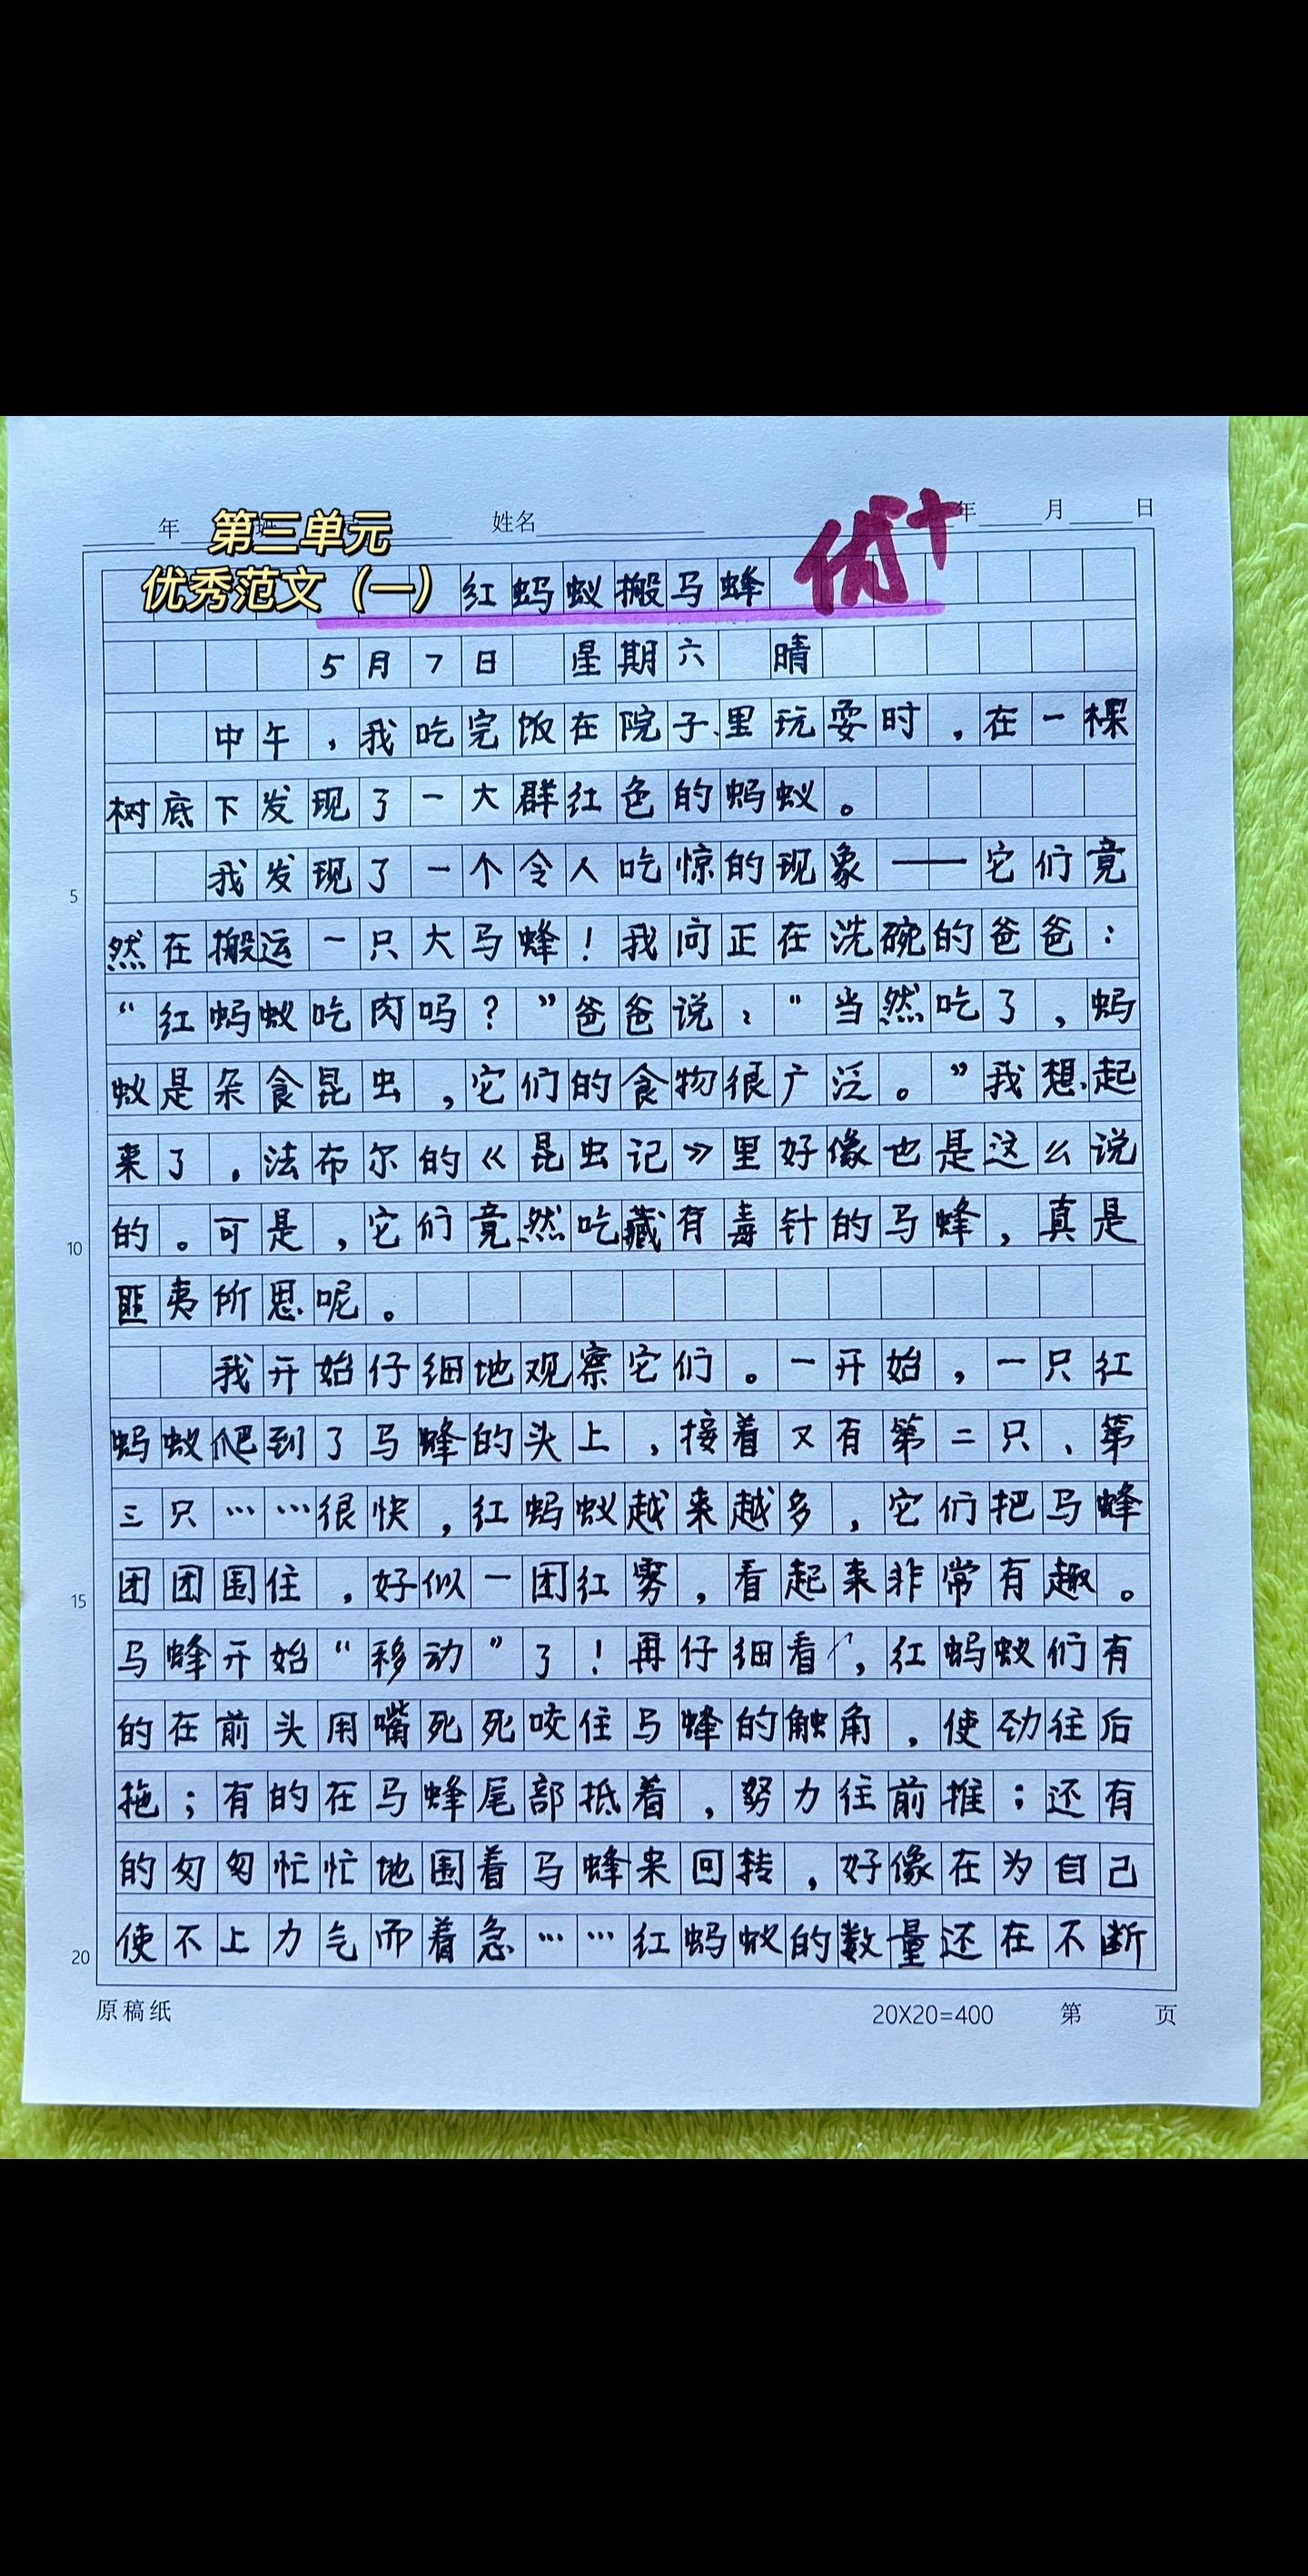 年 班 姓名 年 月 日
第三单元
优秀范文（一）
优+
红蚂蚁搬马蜂
5月7日 星期六 晴
中午，我吃完饭在院子里玩耍时，在一棵
树底下发现了一大群红色的蚂蚁。
我发现了一个令人吃惊的现象——它们竟
5
然在搬运一只大马蜂！我问正在洗碗的爸爸：
“红蚂蚁吃肉吗？”爸爸说：“当然吃了，蚂
蚁是杂食昆虫，它们的食物很广泛。”我想起
来了，法布尔的《昆虫记》里好像也是这么说
的。可是，它们竟然吃藏有毒针的马蜂，真是
10
匪夷所思呢。
我开始仔细地观察它们。一开始，一只红
蚂蚁爬到了马蜂的头上，接着又有第二只、第
三只……很快，红蚂蚁越来越多，它们把马蜂
团团围住，好似一团红雾，看起来非常有趣。
15
马蜂开始“移动”了！再仔细看，红蚂蚁们有
的在前头用嘴死死咬住马蜂的触角，使劲往后
拖；有的在马蜂尾部抵着，努力往前推；还有
的匆匆忙忙地围着马蜂来回转，好像在为自己
使不上力气而着急……红蚂蚁的数量还在不断
20
原稿纸 20X20=400 第 页